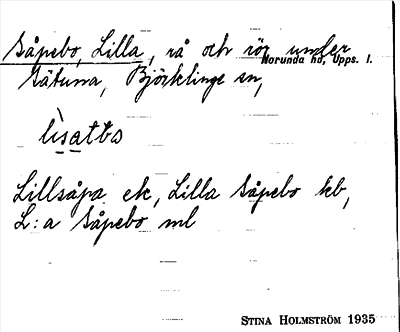 Såpebo, Lilla, rå och rör under
Norunda hd, Upps. l.
Sätuna, Björklinge sn,
Lillsåpa ek, Lilla Såpebo kb,
L:a Såpebo ml
STINA HOLMSTRÖM 1935